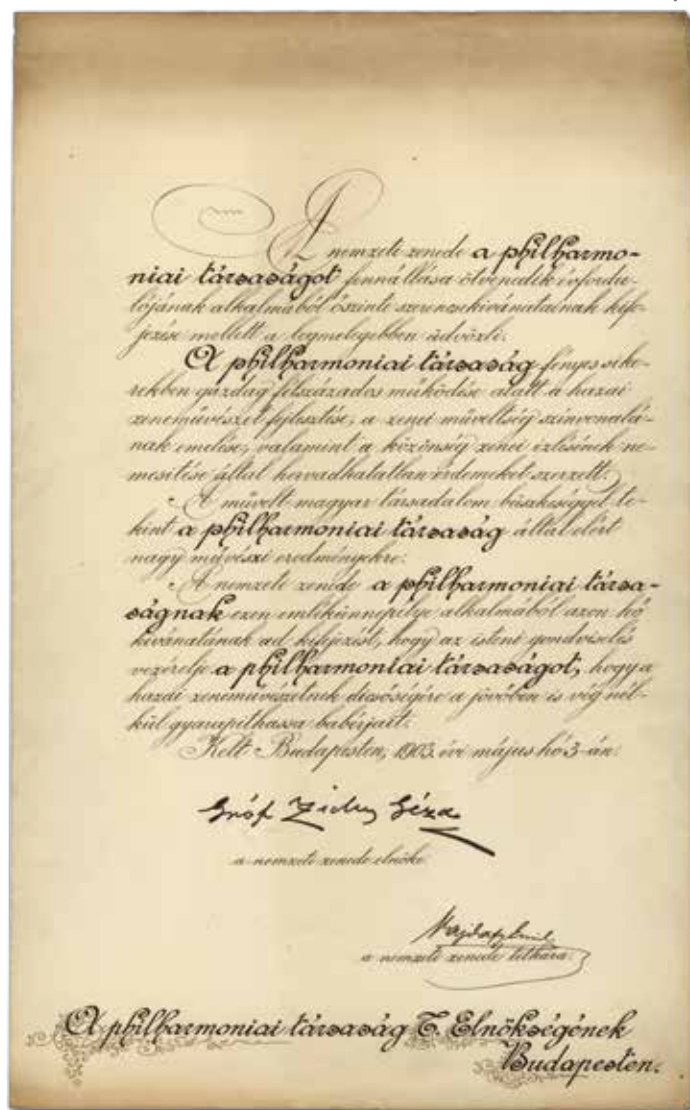 A nemzeti zenede a philharmo-
niai társaságot fennállása ötvenedik évfordu-
lójának alkalmából őszinte szerencsekivánatainak kife-
jezése mellett a legmelegebben üdvözli.
A philharmoniai társaság fényes sike-
rekben gazdag félszázados működése alatt a hazai
zeneművészet fejlesztése, a zenei műveltség szinvonalá-
nak emelése, valamint a közönség zenei izlésének ne-
mesitése által hervadhatatlan érdemeket szerzett.
A művelt magyar társadalom büszkeséggel te-
kint a philharmoniai társaság által elért
nagy művészi eredményekre.
A nemzeti zenede a philharmoniai társa-
ságnak ezen emlékünnepélye alkalmából azon hő
kivánatának ad kifejezést, hogy az isteni gondviselés
vezérelje a philharmoniai társaságot, hogy a
hazai zeneművészetnek dicsőségére a jövőben is vég nél-
kül gyarapithassa babérjait.
Kelt Budapesten, 1903. évi május hó 3-án.
Gróf Zichy Géza
a nemzeti zenede elnöke.
a nemzeti zenede titkára.
A philharmoniai társaság T. Elnökségének
Budapesten.